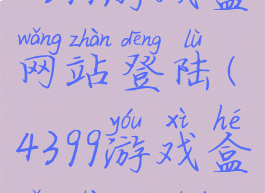 wǎng zhàn dēng lù
网站登陆(
yóu xì hé
4399游戏盒